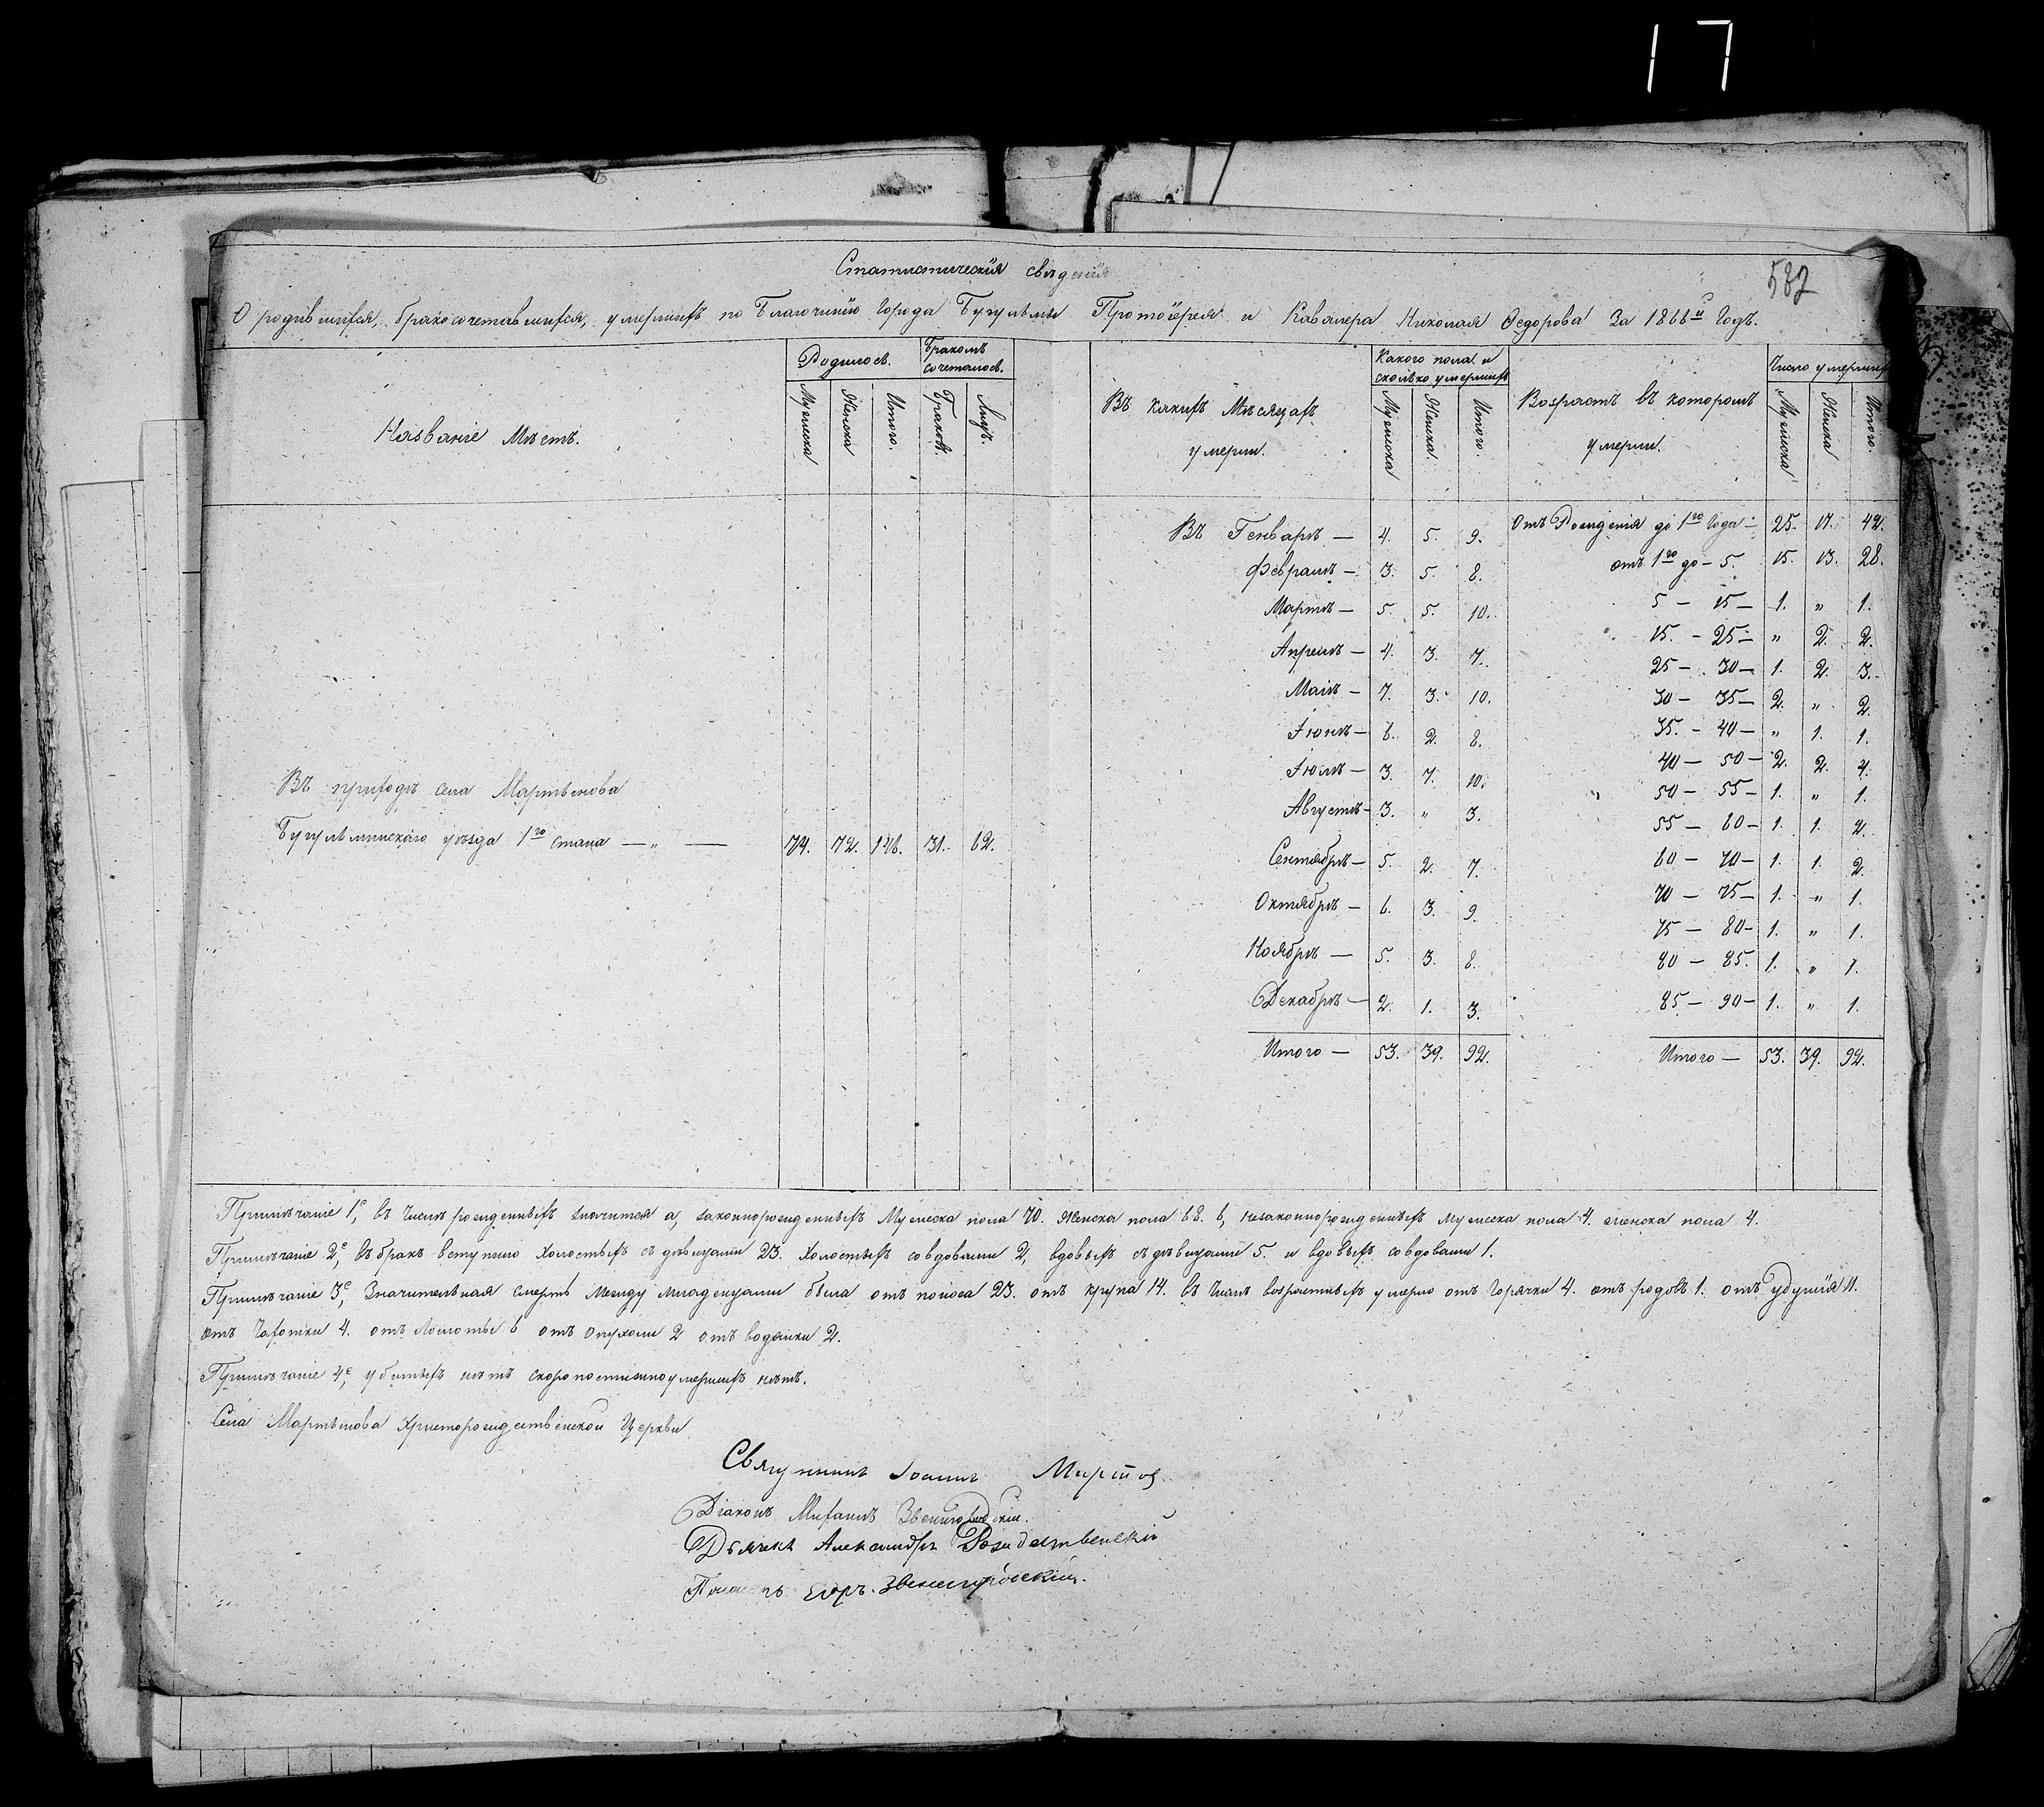 17
587
Статистическія свѣденія
О родившихся, бракосочетавшихся, умершихъ по Благочинію Города Бугульмы Протоіерея и Кавалера Николая Ѳедорова За 1866й Годъ.
Названіе Мѣстъ. Родилось. Бракомъ сочеталось. Въ какихъ Мѣсяцахъ умерли. Какого пола и сколько умершихъ Возрастъ въ которомъ умерли. Число умершихъ
Мужеска Женска Итого. Браковъ. Лицъ. Мужеска Женска. Итого. Мужеска Женска Итого.
Въ приходѣ села Мартынова
Бугульминскаго уѣзда 1го стана — „ — 74. 72. 146. 31. 62.
Въ Генварѣ — 4. 5. 9.
Февралѣ — 3. 5. 8.
Мартѣ — 5. 5. 10.
Апрелѣ — 4. 3. 7.
Маіѣ — 7. 3. 10.
Іюнѣ — 6. 2. 8.
Іюлѣ — 3. 7. 10.
Августѣ — 3. „ 3.
Сентябрѣ — 5. 2. 7.
Октябрѣ — 6. 3. 9.
Ноябрѣ — 5. 3. 8.
Декабрѣ — 2. 1. 3.
Итого — 53. 39. 92.
Отъ Рожденія до 1го Года — 25. 17. 42.
отъ 1го до — 5. 15. 13. 28.
5 — 15 — 1. „ 1.
15. — 25 — „ 2. 2.
25 — 30 — 1. 2. 3.
30 — 35 — 2. „ 2.
35. — 40 — „ 1. 1.
40 — 50 — 2. 2. 4.
50 — 55 — 1. „ 1.
55 — 60 — 1. 1. 2.
60 — 70 — 1. 1. 2.
70 — 75 — 1. „ 1.
75 — 80 — 1. „ 1.
80 — 85. 1. „ 1.
85 — 90 — 1. „ 1.
Итого — 53. 39. 92.
Примѣчаніе 1е, въ числѣ рожденныхъ значится а, законнорожденныхъ Мужеска пола 70. Женска пола 68. б, незаконнорожденныхъ мужеска пола 4. женска пола 4.
Примѣчаніе 2е, въ бракъ вступило холостыхъ съ дѣвицами 23. холостыхъ со вдовами 2, вдовыхъ съ дѣвицами 5. и вдовыхъ со вдовами 1.
Примѣчаніе 3е, Значительная смерть Между младенцами была отъ поноса 23. отъ крупа 14. въ числѣ возрастныхъ умерло отъ Горячки 4. отъ родовъ 1. отъ удушія 11.
отъ Чахотки 4. отъ Ломоты 6 отъ опухоли 2 отъ водянки 2.
Примѣчаніе 4е, убитыхъ нѣтъ скоропостижноумершихъ нѣтъ.
Села Мартынова Христорождественской Церкви
Священникъ Іоаннъ
Діаконъ Михаилъ Звенигородскій.
Дьячекъ Александръ Рождественскій
Егоръ. Звенигородскій.